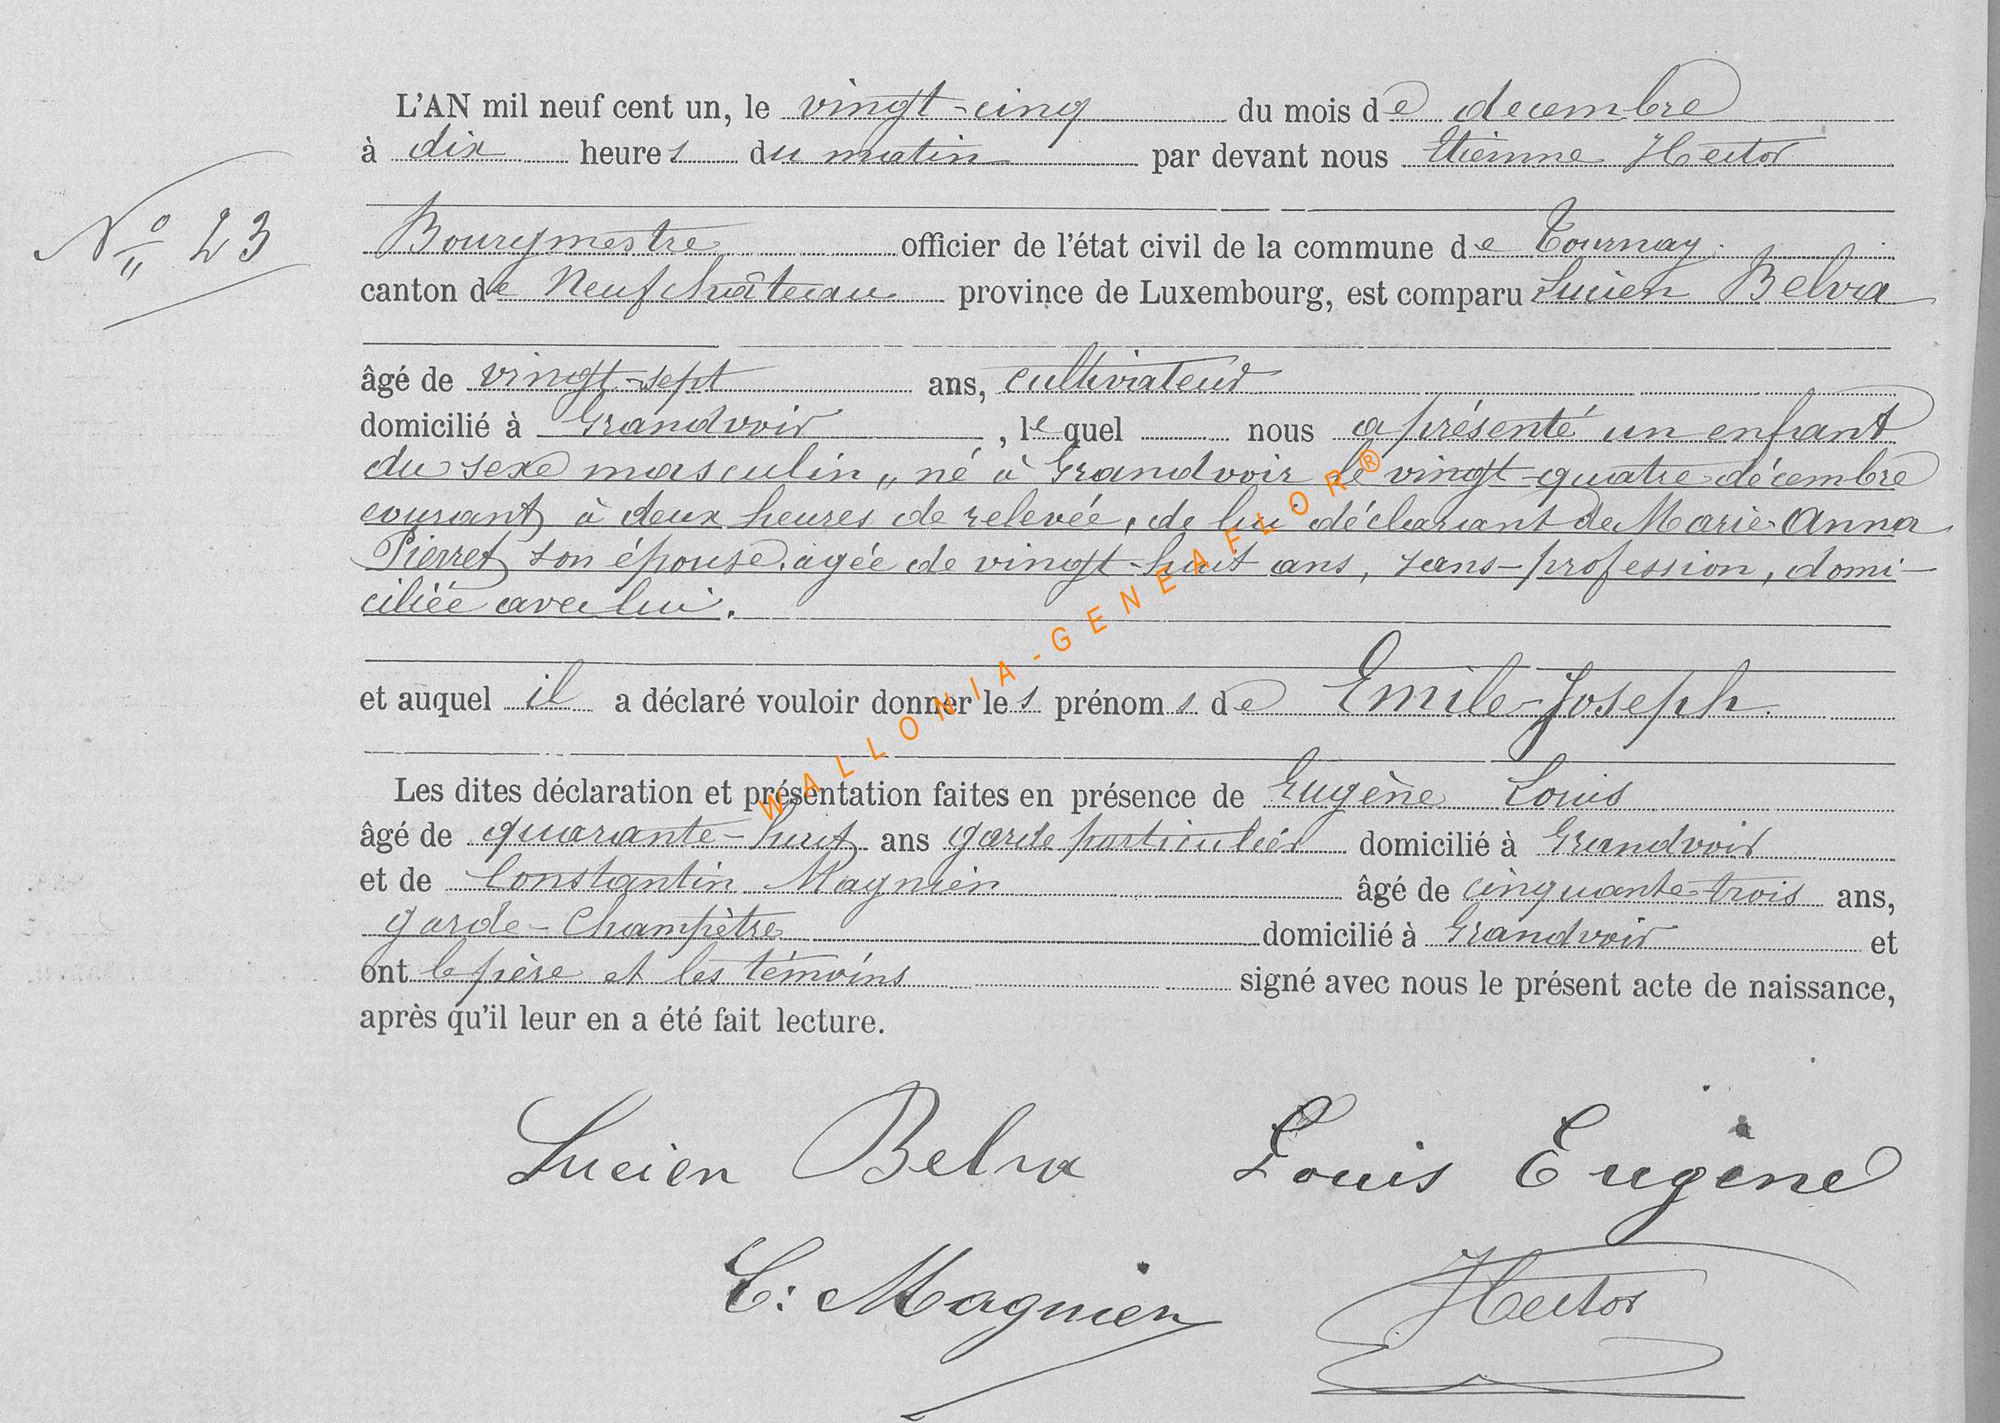 L'AN mil neuf cent un, le vingt-cinq du mois de decembre
à dix heures du matin par devant nous Etienne Hector
N° 23
Bourgmestre officier de l'état civil de la commune de Tournay
canton de Neufchâteau province de Luxembourg, est comparu Lucien Belva
âgé de vingt-sept ans, cultivateur
domicilié à Grandvoir, lequel nous a présenté un enfant
du sexe masculin, né à Grandvoir le vingt-quatre décembre
courant à deux heures de relevée, de lui déclarant de Marie-Anna
Pierret son épouse, agée de vingt-huit ans, sans-profession, domi-
ciliée avec lui.
et auquel il a déclaré vouloir donner les prénoms de Emile-Joseph.
Les dites déclaration et présentation faites en présence de Eugène Louis
âgé de quarante-huit ans garde particulier domicilié à Grandvoir
et de Constantin Magnien âgé de cinquante-trois ans,
garde-Champêtre domicilié à Grandvoir et
ont le père et les témoins signé avec nous le présent acte de naissance,
après qu'il leur en a été fait lecture.
Lucien Belva Louis Eugène
C: Magnien Hector
WALLONIA-GENEAFLOR®